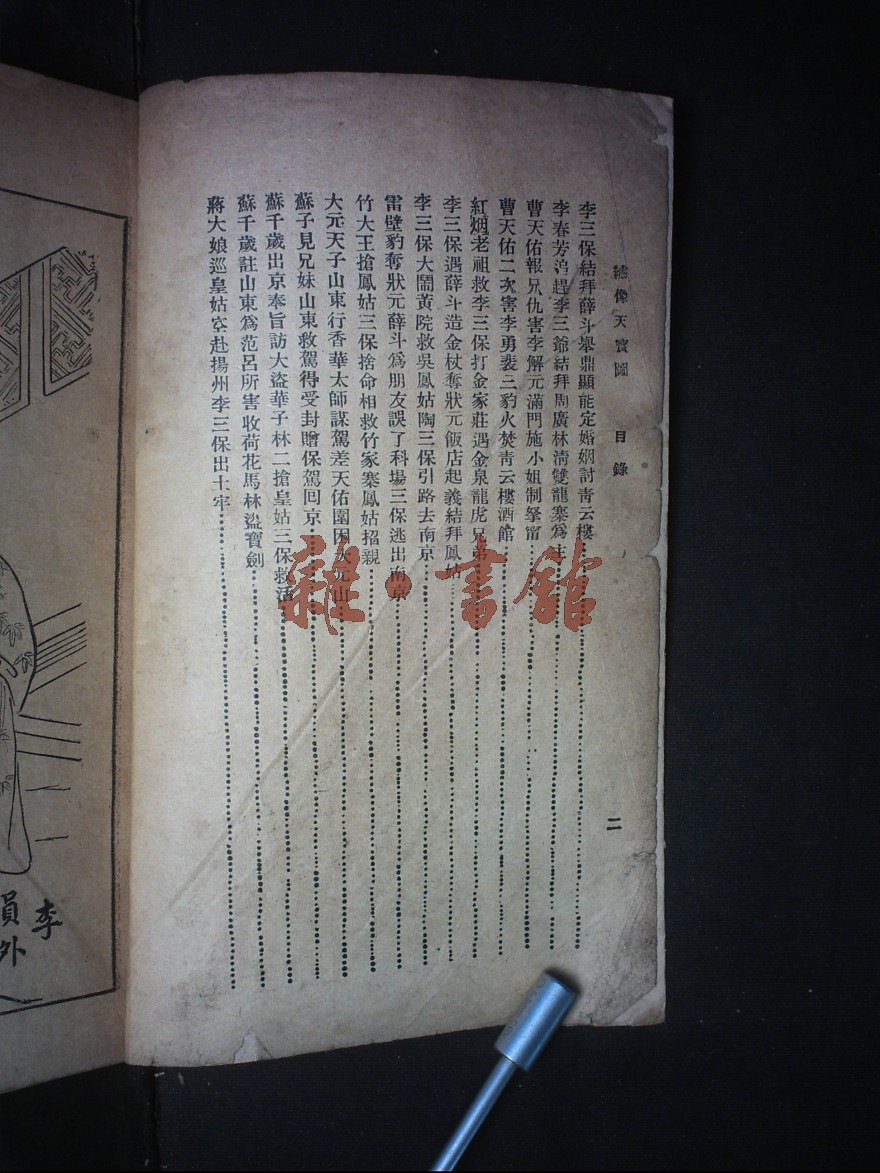 繡像天寶圖 目錄 二
李三保結拜薛斗舉鼎顯能定婚姻討靑云樓
李春芳追趕李三爺結拜周廣林淸雙龍寨爲主
曹天佑報兄仇害李解元滿門施小姐制拏甯
曹天佑二次害李勇裴三豹火焚靑云樓酒館
紅烟老祖救李三保打金家莊遇金泉龍虎兄弟
李三保遇薛斗造金杖奪狀元飯店起義結拜鳳姑
李三保大鬧黃院救吳鳳姑陶三保引路去南京
雷壁豹奪狀元薛斗爲朋友誤了科場三保逃出南京
竹大王搶鳳姑三保捨命相救竹家寨鳳姑招親
大元天子山東行香華太師謀駕差天佑圍困火元山
蘇子見兄妹山東救駕得受封贈保駕回京
蘇千歲出京奉旨訪大盜華子林二搶皇姑三保救活
蘇千歲註山東爲范呂所害收荷花馬林盜寶劍
蔣大娘巡皇姑空赴揚州李三保出土牢
李
員外
雜·書館